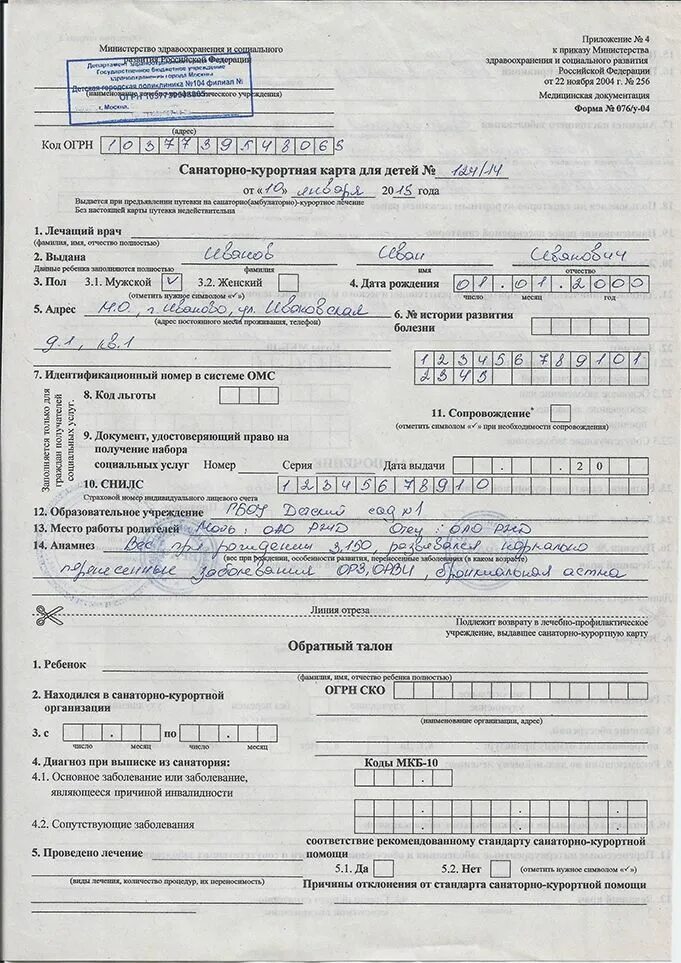 Министерство здравоохранения и социального
развития Российской Федерации
Департамент здравоохранения
Государственное бюджетное учреждение
здравоохранения города Москвы
Детская городская поликлиника №104 филиал №
ОГРН
г. Москва,
(адрес)
Приложение № 4
к приказу Министерства
здравоохранения и социального развития
Российской Федерации
от 22 ноября 2004 г. № 256
Медицинская документация
Форма № 076/у-04
Код ОГРН 1037739548065
Санаторно-курортная карта для детей № 124/14
от «10» января 2015 года
Выдается при предъявлении путевки на санаторно(амбулаторно)-курортное лечение
Без настоящей карты путевка недействительна
1. Лечащий врач
(фамилия, имя, отчество полностью)
2. Выдана Иванов Иван Иванович
Данные ребенка заполняются полностью фамилия имя отчество
3. Пол 3.1. Мужской ✓ 3.2. Женский
(отметить нужное символом «✓»)
4. Дата рождения 01.01.2000
число месяц год
5. Адрес М.О., г. Иваново, ул. Ивановская
(адрес постоянного места проживания, телефон)
д.1, кв.1
6. № истории развития
болезни
7. Идентификационный номер в системе ОМС
123456789101
2345
Заполняется только для
граждан получателей
социальных услуг.
8. Код льготы
11. Сопровождение
(отметить символом «✓» при необходимости сопровождения)
9. Документ, удостоверяющий право на
получение набора
социальных услуг Номер Серия Дата выдачи . . 20
10. СНИЛС 12345678910
Страховой номер индивидуального лицевого счета
12. Образовательное учреждение ГБОУ Детский сад №1
13. Место работы родителей Мать: ОАО РЖД Отец: ОАО РЖД
14. Анамнез Вес при рождении 3,150, развивался нормально
(вес при рождении, особенности развития, перенесенные заболевания (в каком возрасте)
перенесенные заболевания ОРЗ, ОРВИ, бронхиальная астма
Линия отреза
Подлежит возврату в лечебно-профилактическое
учреждение, выдавшее санаторно-курортную карту
Обратный талон
1. Ребенок
(фамилия, имя, отчество ребенка полностью)
2. Находился в санаторно-курортной
организации
ОГРН СКО
(наименование организации, адрес)
3. с . по .
число месяц число месяц
4. Диагноз при выписке из санатория: Коды МКБ-10
4.1. Основное заболевание или заболевание,
являющееся причиной инвалидности
4.2. Сопутствующие заболевания
5. Проведено лечение
(виды лечения, количество процедур, их переносимость)
соответствие рекомендованному стандарту санаторно-курортной
помощи
5.1. Да 5.2. Нет (отметить нужное символом «✓»)
Причины отклонения от стандарта санаторно-курортной помощи